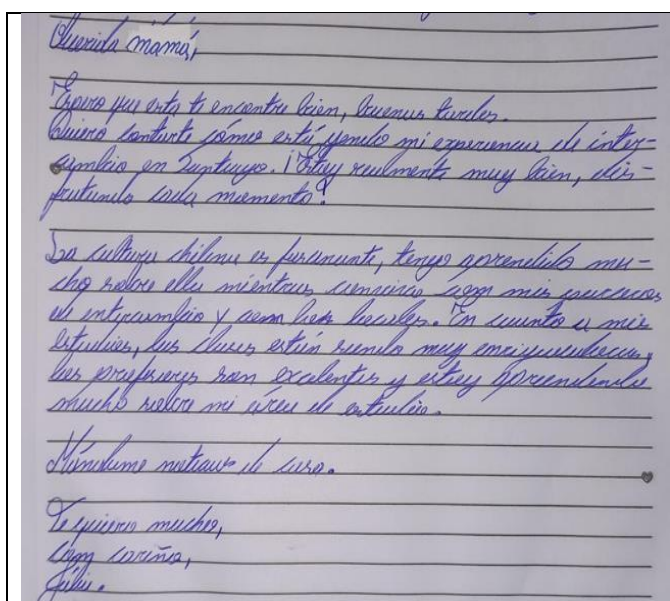 Querida mamá,
Espero que esta te encontre bien, buenas tardes.
Quiero contarte cómo está yendo mi experiencia de inter-
cambio en Santiago. ¡Estoy realmente muy bien, dis-
frutando cada momento!
La cultura chilena es fascinante, tengo aprendido mu-
cho sobre ella mientras convivio com mis parceros
de intercambio y com los locales. En cuanto a mis
estudios, las clases están siendo muy enriquecedoras,
los profesores son excelentes y estoy aprendendo
mucho sobre mi área de estudio.
Mándame noticias de casa.
Te quiero mucho,
com cariño,
Júlia.